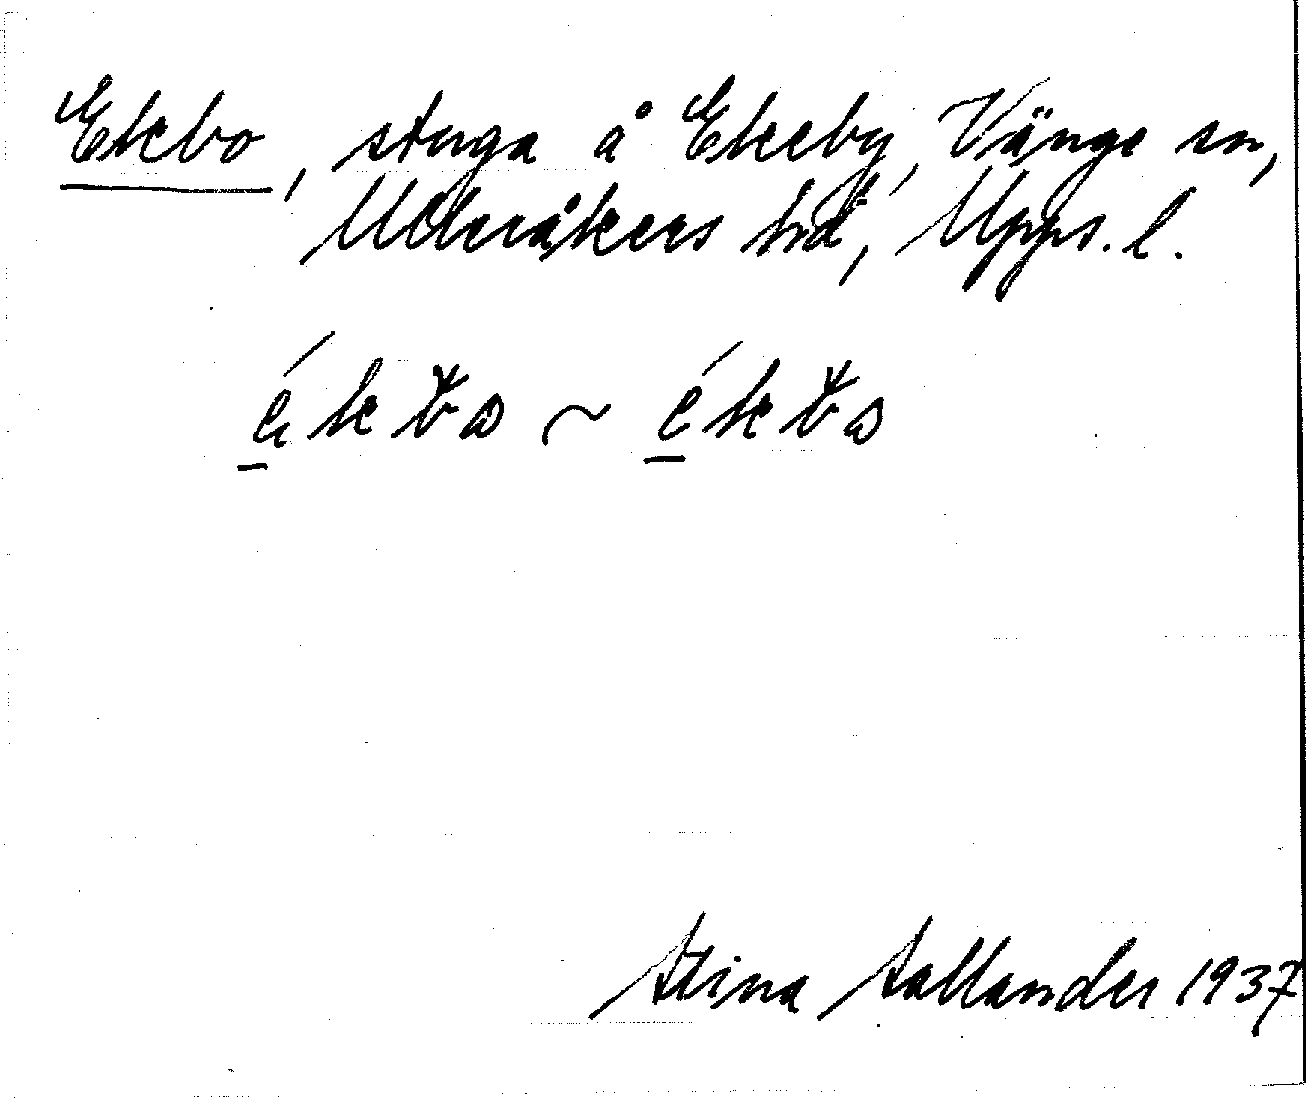 Ekbo, stuga å Ekeby, Vänge sn,
Ulleråkers hd, Upps. l.
Stina Sallander 1937